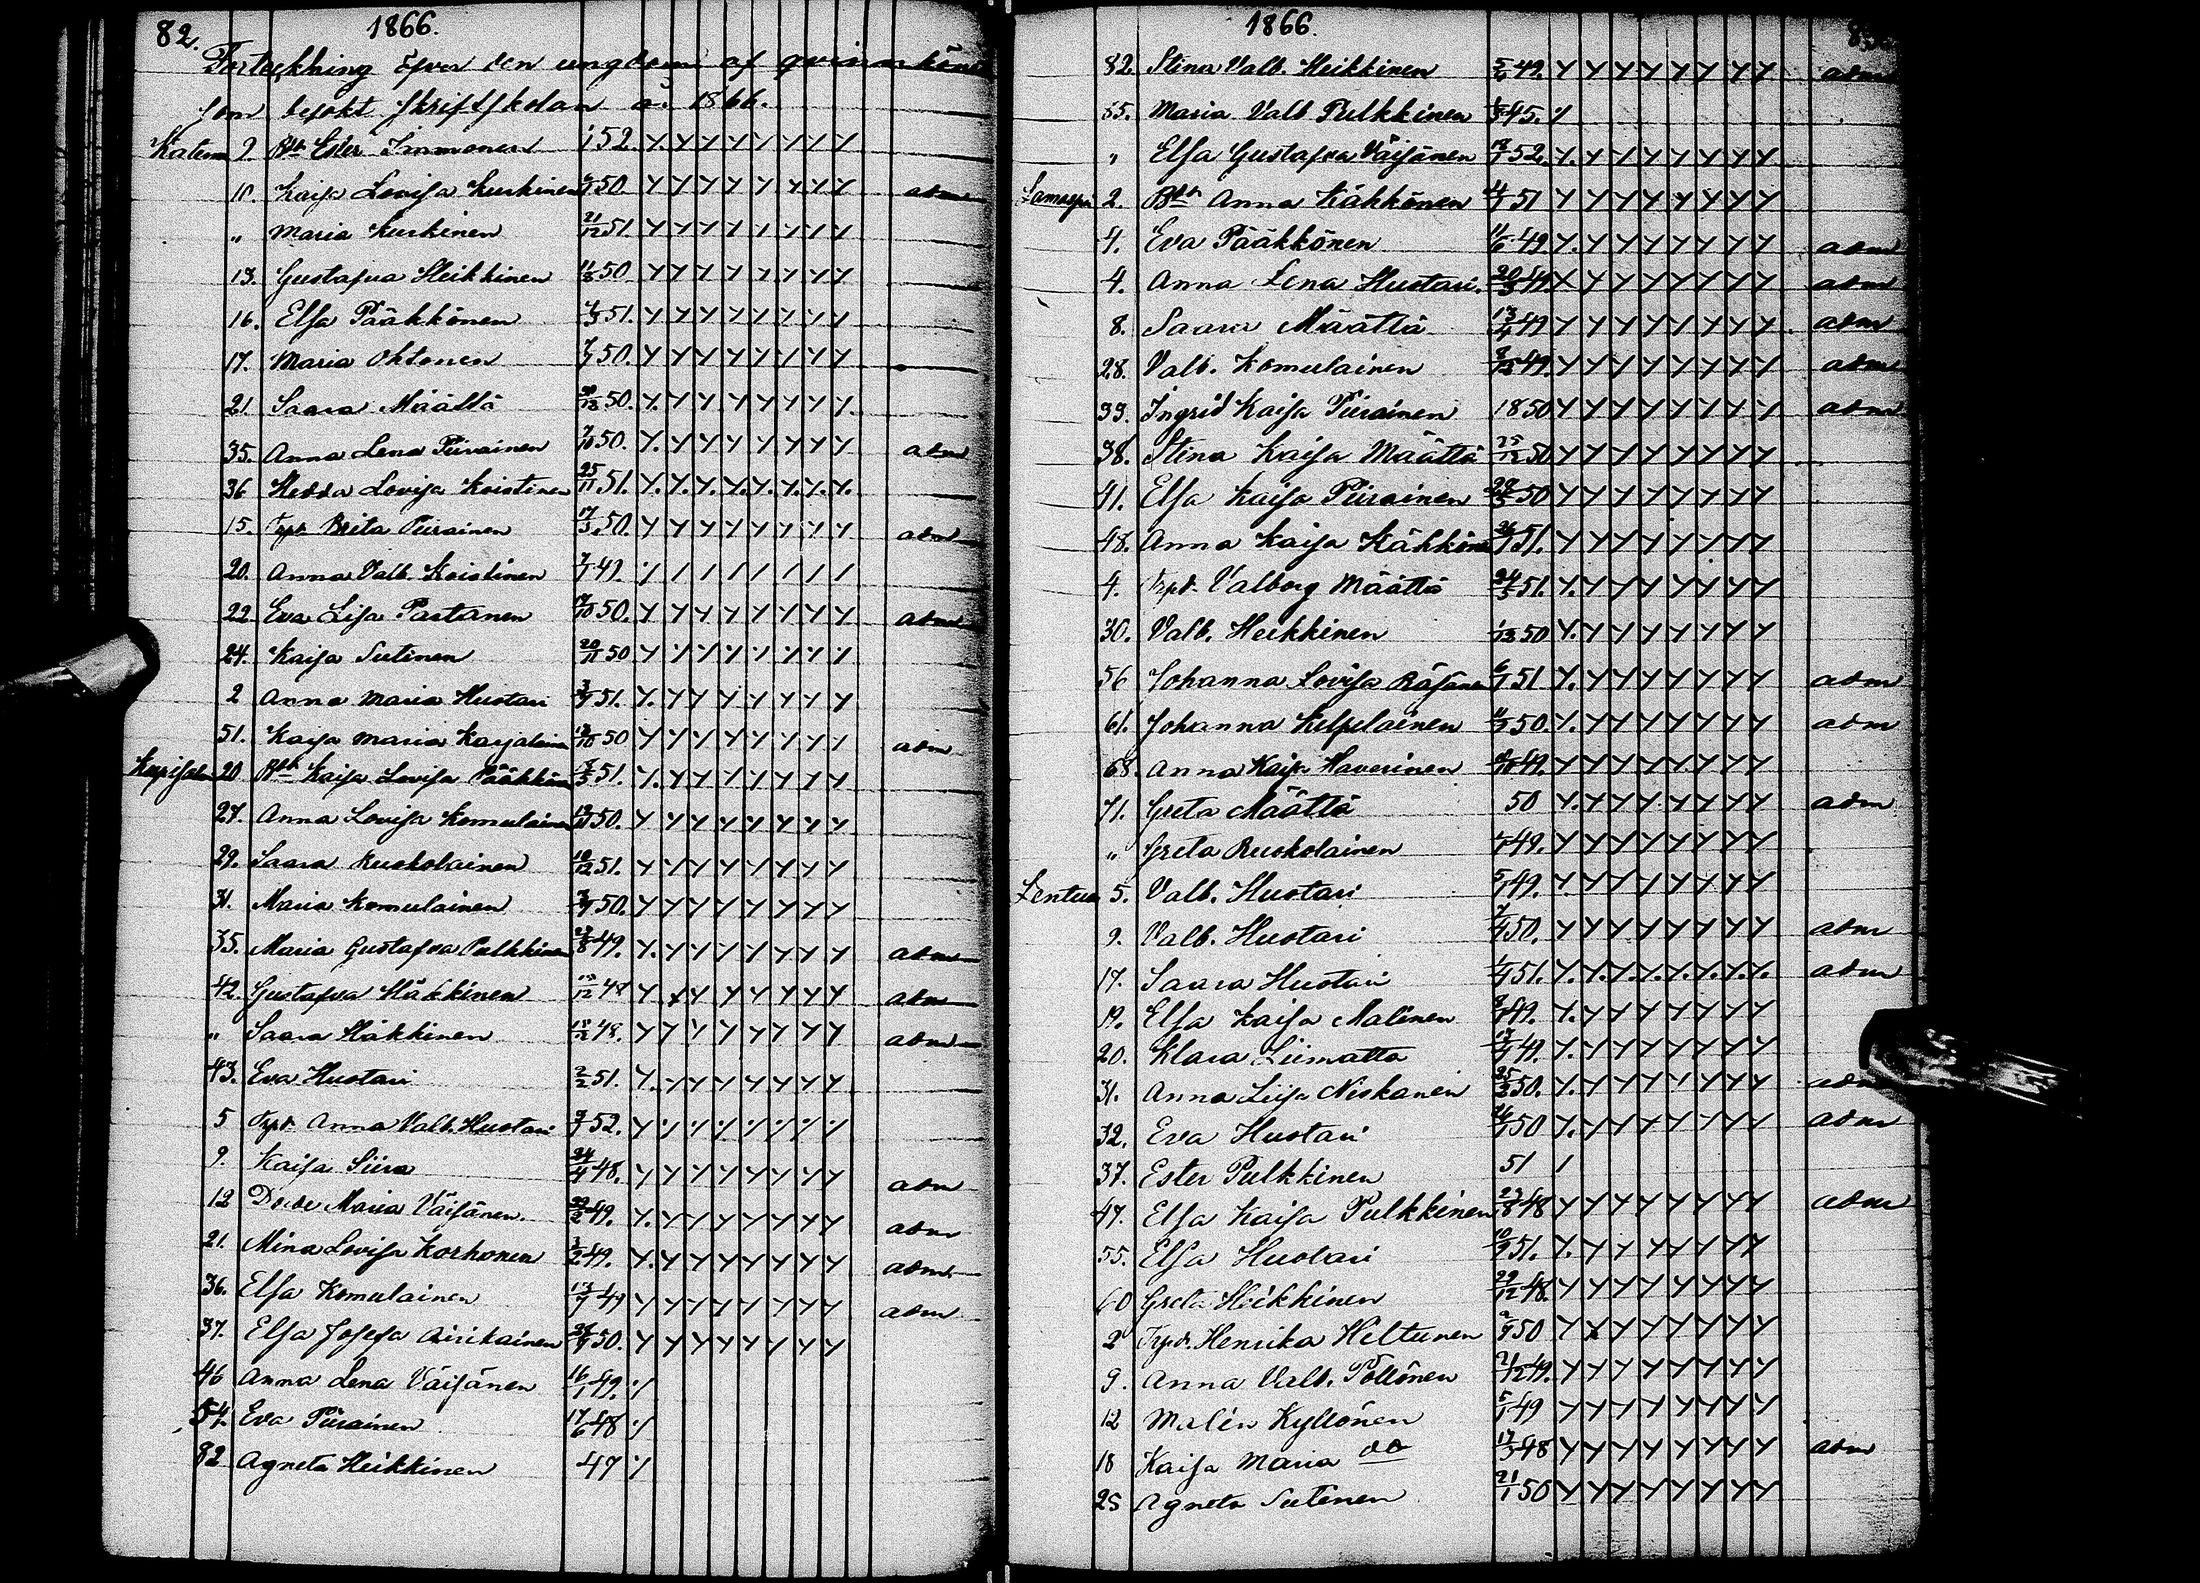 82. 1866.
Förteckning öfver den ungdom af qvinnokönet
som besökt skriftskolan år 1866.
9. Bdr Ester 1 52. y. y y y y y y y
10. Kaisa Lovisa Kurkinen 50 y y y y y y y y adm
" Maria Kurkinen 21/12 51. y y y y y y y y
13. Gustafva Heikkinen 11/8 50 y y y y y y y y
16. Elsa Pääkkönen 4/3 51. y y y y y y y y
17. Maria Ohtonen 50. y y y y y y y y
21 Saara Määttä 50. y. y y y y y y y
35. Anna Lena Piirainen 7/10 50. y. y y y y y y y adm
36 Hedda Lovisa Koistinen 25/11 51. y. y. y. y. y. y. y. y.
15. Trpd. Brita Piirainen 17/3 50. y y y y y y y y adm
20. Anna Valb. Koistinen 49. / / / / / / / /
22. Eva Lisa Partanen 50. y y y y y y y y adm
24. Kaisa Sutinen 20/11 50 y y y y y y y y
2 Anna Maria Huotari 51. y. y y y y y y y
51. Kaisa Maria Karjalainen 50 y y y y y y y y adm
20 Bdr Kaisa Lovisa Pääkkönen 51. y. y y y y y y y
27. Anna Lovisa Komulainen 50. y y y y y y y y
29. Saara Ruokolainen 10/12 51. y y y y y y y y
31. Maria Komulainen 50. y y y y y y y y
35. Maria Gustafva Pulkkinen 49. y. y y y y y y y adm
42. Gustafva Häkkinen y y y y y y y y adm
" Saara Häkkinen 48. y y y y y y y y adm
43. Eva Huotari 2/2 51. y. y y y y y y y
5 Trpd. Anna Valb. Huotari 52. y y y y y y y y
9. Kaisa Siira 24/4 48. y y y y y y y y adm
12 Do de Maria Väisänen. 49. y. y y y y y y y adm
21. Mina Lovisa Korhonen 49. y. y y y y y y y adm.
36. Elsa Komulainen 49 y y y y y y y y adm
37. Elsa Josefa Airikainen 50. y y y y y y y y
46 Anna Lena Väisänen 16/1 49. y
54. Eva Piirainen 17/6 48 y
82 Agneta Heikkinen 47 y
1866.
82. Stina Valb. Heikkinen 49. y y y y y y y y adm
85. Maria Valb Pulkkinen 45. y
" Elsa Gustafva Väisänen 52. y. y y y y y y y
2. Bdr Anna Kähkönen 51 y y y y y y y y
4. Eva Pääkkönen 11/6 49 y. y y y y y y y adm
4. Anna Lena Huotari. 20/3 49. y y y y y y y y adm
8. Saara Määttä 13/4 49 y y y y y y y y adm
28. Valb. Komulainen 49. y y y y y y y y adm
33. Ingrid Kaisa Piirainen 1850 y y y y y y y y adm
38. Stina Kaisa Määttä 25/12 50 y y y y y y y y
41. Elsa Kaisa Piirainen 50 y y y y y y y y
48. Anna Kaisa Kähkönen 51. y y y y y y y y
4. Trpd. Valborg Määttä 24/3 51. y. y y y y y y y
30. Valb. Heikkinen 1/12 50 y. y y y y y y y
56 Johanna Lovisa Räsänen 51 y. y y y y y y y adm
61. Johanna Kelpelainen 50. y. y y y y y y y adm
68. Anna Kaisa Haverinen 49. y y y y y y y y
71. Greta Määttä 50 y. y y y y y y y adm
" Greta Ruokolainen 49. y y y y y y y y
Lentua 5. Valb. Huotari 49. y y y y y y y y
9. Valb. Huotari 50. y y y y y y y y adm
17. Saara Huotari 51. y. y. y. y. y. y. y. y. adm
19. Elsa Kaisa Malinen 49. y. y y y y y y y
20. Klara Liimatta 49. y. y y y y y y y
31. Anna Lisa Niskanen 25/2 50. y. y y y y y y y adm
32. Eva Huotari 50 y. y y y y y y y adm
37. Ester Pulkkinen 51 /
47. Elsa Kaisa Pulkkinen 23/8 48 y y y y y y y y adm
55. Elsa Huotari 10/9 51. y. y y y y y y y
60 Greta Heikkinen 29/12 48. y y y y y y y y
2 Trpd. Henrika Heltunen 50 y y y y y y y y
9. Anna Valb. Pöllönen 21/12 49. y y y y y y y y
12 Malin Kyllönen 49 y y y y y y y y
18 Kaisa Maria do 48 y y y y y y y y adm
25 Agneta Sutinen 21/1 50 y y y y y y y y